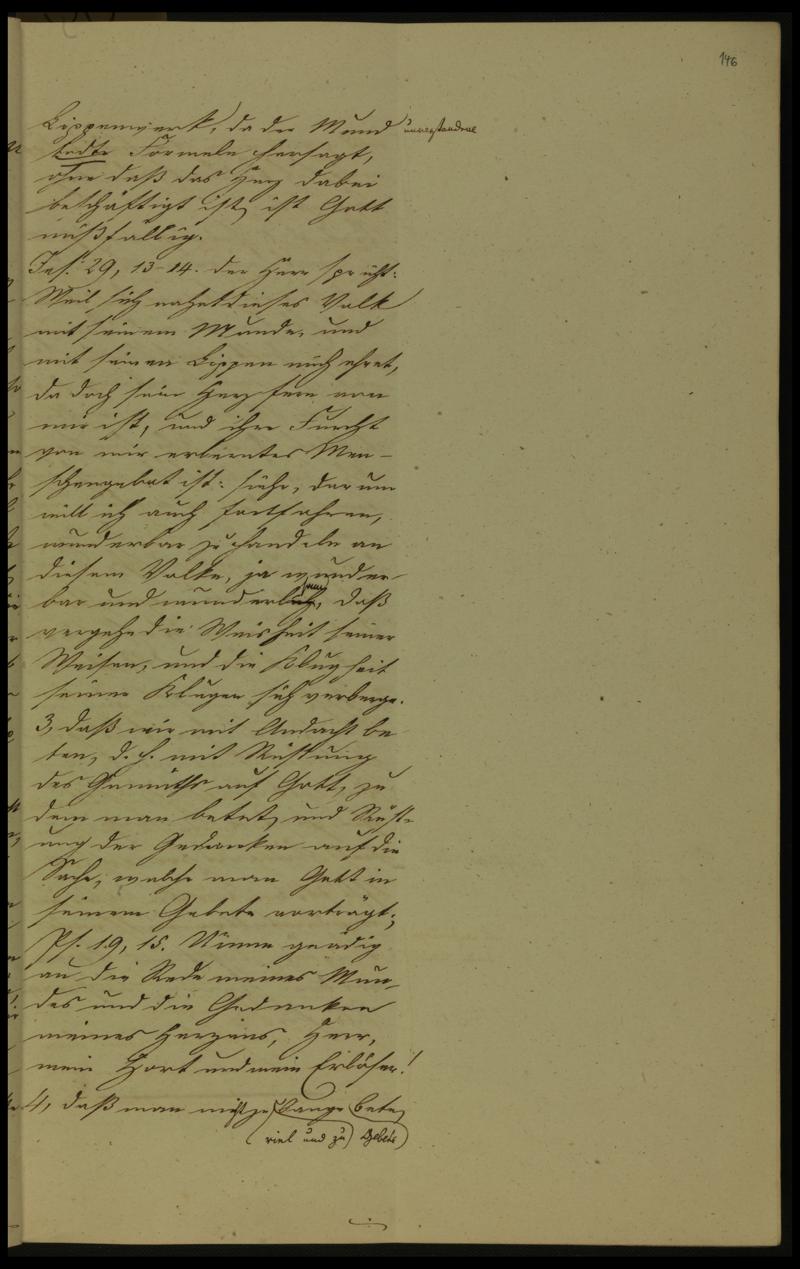 146
Lippenwerk, da der Mund unverstandene
todte Formeln hersagt,
ohne daß das Herz dabei
beschäftigt ist, ist Gott
mißfällig.
Jes. 29, 13-14. Der Herr spricht:
Weil sich nahet dieses Volk
mit seinem Munde, und
mit seinen Lippen mich ehret,
da doch sein Herz fern von
mir ist, und ihre Furcht
vor mir erlerntes Men-
schengebot ist: siehe, darum
will ich auch fortfahren,
wunderbar zu handeln an
diesem Volke, ja wunder-
bar und wunderlich, daß
vergehe die Weisheit seiner
Weisen, und die Klugheit
seiner Klugen sich verberge.
3, daß wir mit Andacht be
ten, d. h. mit Richtung
des Gemüths auf Gott, zu
dem man betet, und Richt-
ung der Gedanken auf die
Sache, welche man Gott in
seinem Gebete vorträgt;
Ps. 19, 15. Nimm gnädig
an die Rede meines Mun-
des und die Gedanken
meines Herzens, Herr,
mein Hort und mein Erlöser!
4, daß man nicht zu lange bete,
viel und zu Gebete